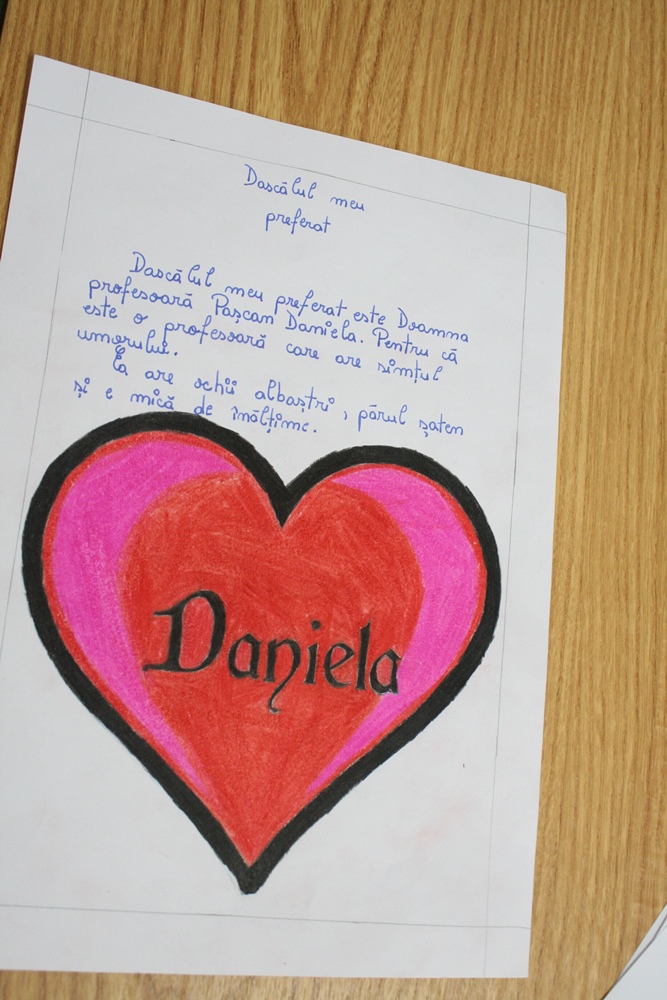 Dascălul meu
preferat
Dascălul meu preferat este Doamna
profesoară Pașcan Daniela. Pentru că
este o profesoară care are simțul
umorului.
Ea are ochii albaștri, părul șaten
și e mică de înălțime.
Daniela